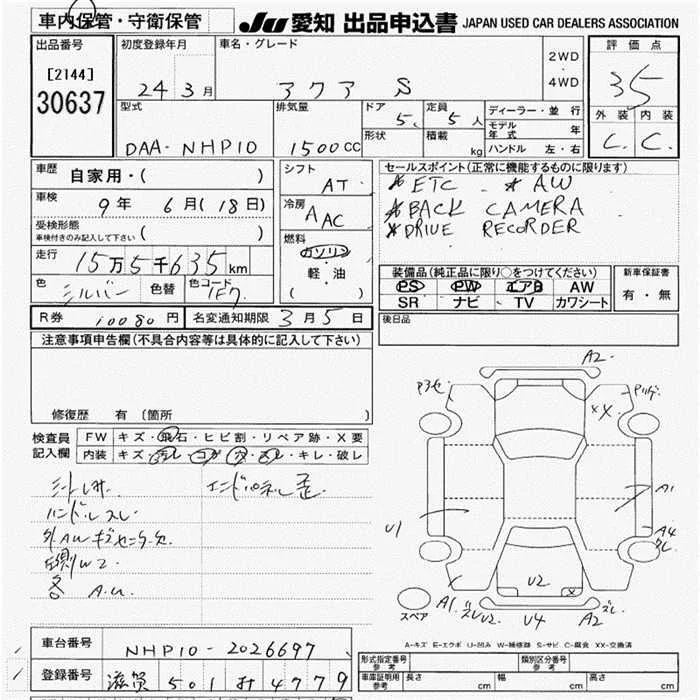 車内保管・守衛保管
JU 愛知 出品申込書 JAPAN USED CAR DEALERS ASSOCIATION
出品番号
[2144]
30637
初度登録年月
24 3月
車名・グレード
アクア S
2WD
・
4WD
評価点
3.5
外装 内装
C. C.
型式
DAA-NHP10
排気量
1500CC
ドア
5
形状
定員
5人
積載
kg
ディーラー・並行
モデル年式 年
ハンドル 左・右
車歴
自家用・( )
車検
9年 6月(18日)
受検形態
車検付きのみ記入して下さい ( )
走行
15万5千635km
色
シルバー
色替
色コード
1F7
シフト
AT
冷房
AAC
燃料
ガソリン
軽・油
( )
セールスポイント(正常に機能するものに限ります)
*ETC *AW
*BACK CAMERA
*DRIVE RECORDER
装備品(純正品に限り○をつけてください)
PS PW エアB AW
SR ナビ TV カワシート
新車保証書
有・無
R券 10080円 名変通知期限 3月5日
後日品
注意事項申告欄(不具合内容等は具体的に記入して下さい)
修復歴 有 〔箇所 〕
検査員
記入欄
FW キズ・飛石・ヒビ割・リペア跡・X要
内装 キズ・汚レ・コゲ・穴・スレ・キレ・破レ
エンドパネル歪
ハンドルスレ
左側W2
A2
XX
A1
A4
U1
U2
X
A1
U2
U4
A2
スペア
A-キズ E-エクボ U-凹み W-補修跡 S-サビ C-腐食 XX-交換済
車台番号 NHP10-2026697
登録番号 滋賀 501 す 4779
形式指定番号
参考
類別区分番号
参考
車庫証明用
参考
長さ cm 幅 cm 高さ cm